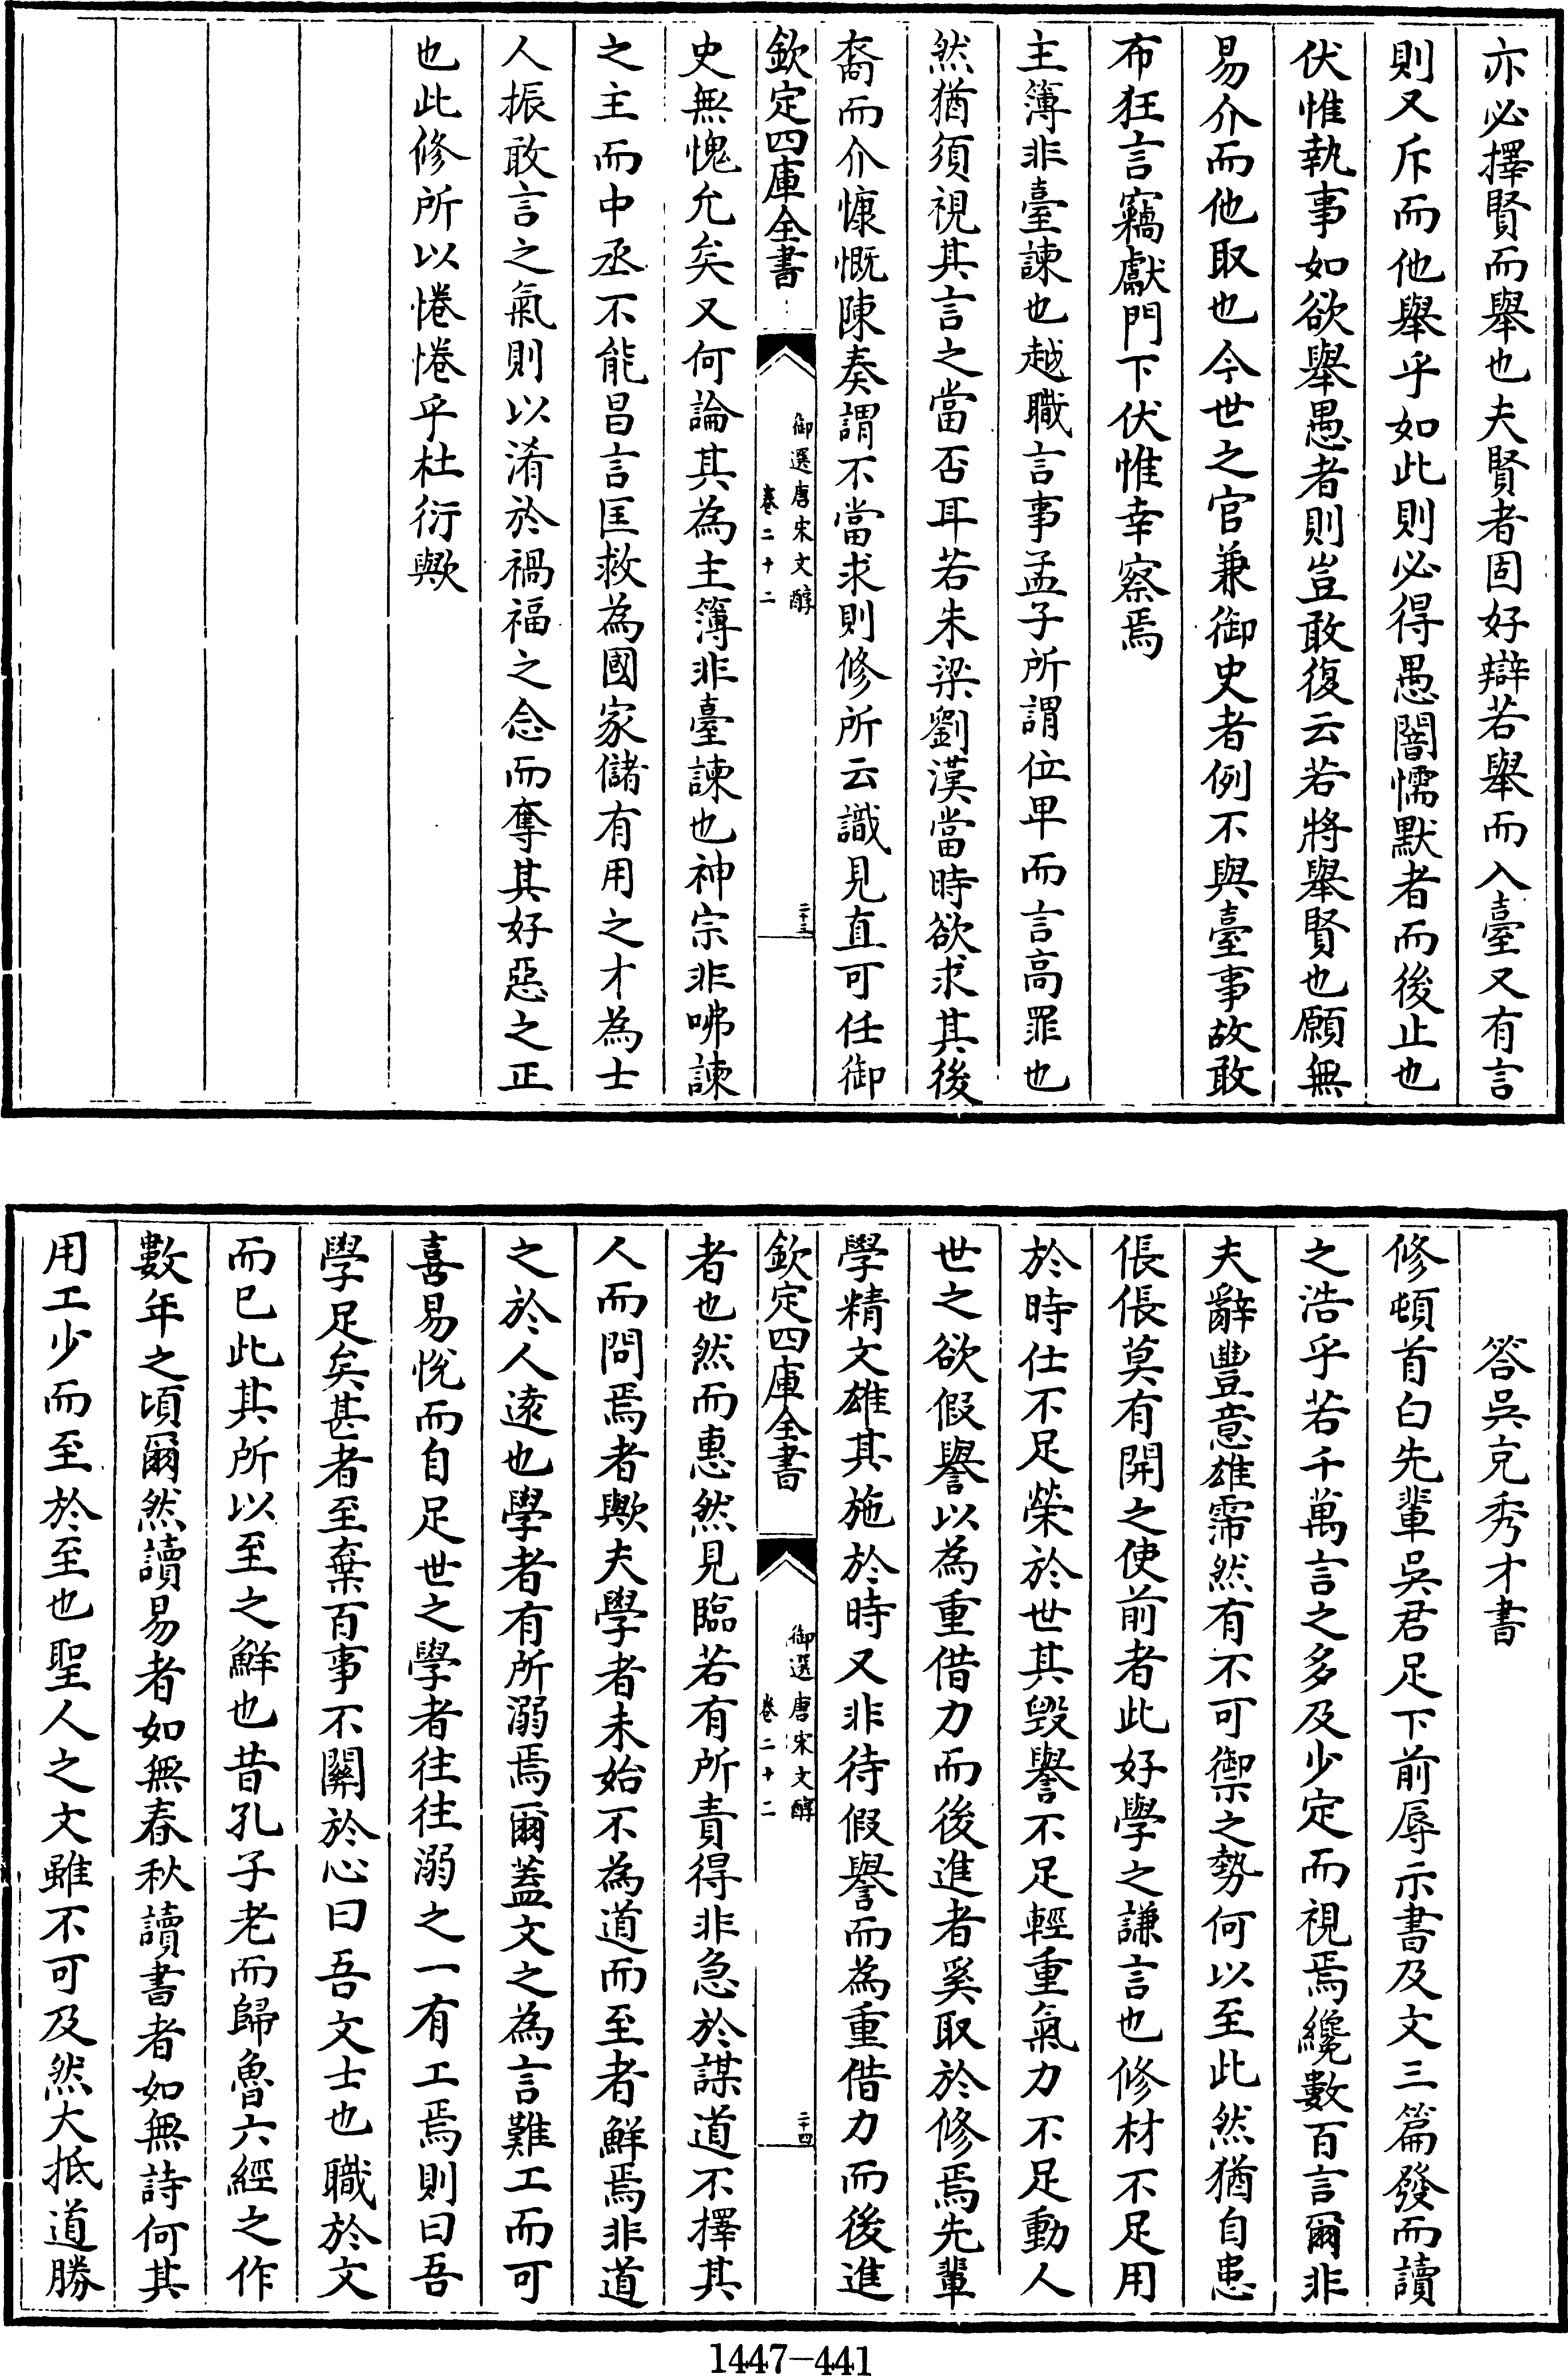 亦必擇賢而舉也夫賢者固好辯若舉而入臺又有言
則又斥而他舉乎如此則必得愚闇懦默者而後止也
伏惟執事如欲舉愚者則豈敢復云若將舉賢也願無
易介而他取也今世之官兼御史者例不與臺事故敢
布狂言竊獻門下伏惟幸察焉
主簿非臺諫也越職言事孟子所謂位卑而言高罪也
然猶須視其言之當否耳若朱梁劉漢當時欲求其後
裔而介慷慨陳奏謂不當求則修所云識見直可任御
欽定四庫全書
御選唐宋文醇
卷二十二
二十三
史無愧允矣又何論其為主簿非臺諫也神宗非咈諫
之主而中丞不能昌言匡救為國家儲有用之才為士
人振敢言之氣則以淆於禍福之念而奪其好惡之正
也此修所以惓惓乎杜衍歟
答吳克秀才書
修頓首白先輩吳君足下前辱示書及文三篇發而讀
之浩乎若千萬言之多及少定而視焉纔數百言爾非
夫辭豐意雄霈然有不可禦之勢何以至此然猶自患
倀倀莫有開之使前者此好學之謙言也修材不足用
於時仕不足榮於世其毀譽不足輕重氣力不足動人
世之欲假譽以為重借力而後進者奚取於修焉先輩
學精文雄其施於時又非待假譽而為重借力而後進
欽定四庫全書
御選唐宋文醇
卷二十二
二十四
者也然而惠然見臨若有所責得非急於謀道不擇其
人而問焉者歟夫學者未始不為道而至者鮮焉非道
之於人遠也學者有所溺焉爾蓋文之為言難工而可
喜易悅而自足世之學者往往溺之一有工焉則曰吾
學足矣甚者至棄百事不關於心曰吾文士也職於文
而已此其所以至之鮮也昔孔子老而歸魯六經之作
數年之頃爾然讀易者如無春秋讀書者如無詩何其
用工少而至於至也聖人之文雖不可及然大抵道勝
1447-441